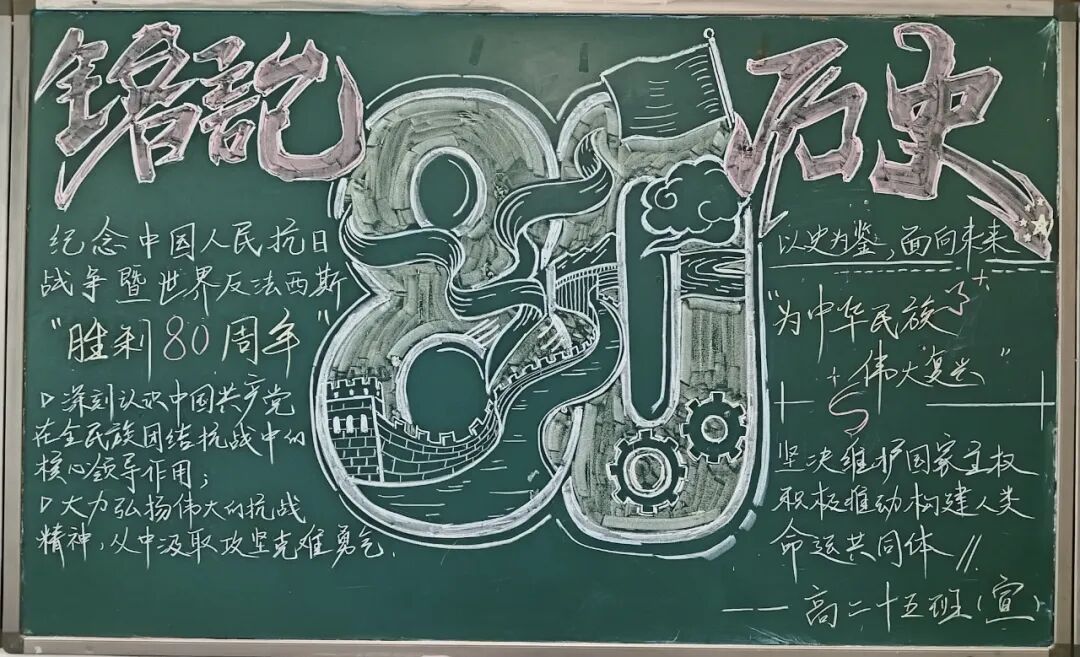 铭记历史
80
纪念中国人民抗日
战争暨世界反法西斯
"胜利80周年"
▷深刻认识中国共产党
在全民族团结抗战中的
核心领导作用；
▷大力弘扬伟大的抗战
精神，从中汲取攻坚克难勇气.
以史为鉴，面向未来
"为中华民族
伟大复兴"
坚决维护国家主权
积极推动构建人类
命运共同体//
——高二十五班（宣）